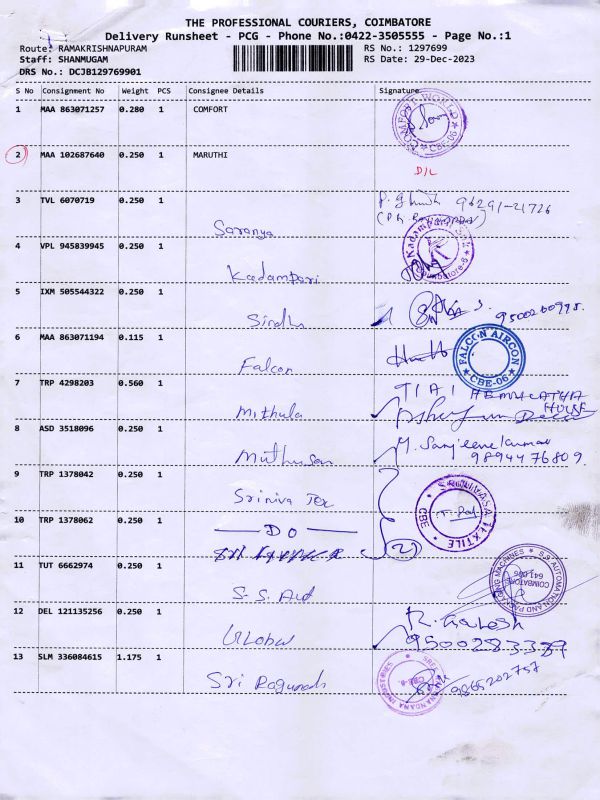 THE PROFESSIONAL COURIERS, COIMBATORE
Delivery Runsheet - PCG - Phone No.:0422-3505555 - Page No.:1
Route: RAMAKRISHNAPURAM RS No.: 1297699
Staff: SHANMUGAM RS Date: 29-Dec-2023
DRS No.: DCJB129769901
S No Consignment No Weight PCS Consignee Details Signature
1 MAA 863071257 0.280 1 COMFORT
COMFORT WORLD CBE-06
2 MAA 102687640 0.250 1 MARUTHI
D/L
3 TVL 6070719 0.250 1 Saranya
96291-21726
4 VPL 945839945 0.250 1 Kadampari
5 IXM 505544322 0.250 1 Sindhu
9500260995.
6 MAA 863071194 0.115 1 Falcon
FALCON AIRCON CBE-06
7 TRP 4298203 0.560 1 Mithula
HEMALATHA
HOUSE
8 ASD 3518096 0.250 1 Muthusan
M. Sanjeevekumar
9894476809.
9 TRP 1378042 0.250 1 Sriniva Tex
SRINIVASA TEXTILE CBE
10 TRP 1378062 0.250 1 — DO —
(2)
11 TUT 6662974 0.250 1 S.S. Aut
S.S AUTOMATION AND PACKAGING MACHINES COIMBATORE 641 006
12 DEL 121135256 0.250 1 Global
9500283387
13 SLM 336084615 1.175 1 Sri Ragunath
9865202757